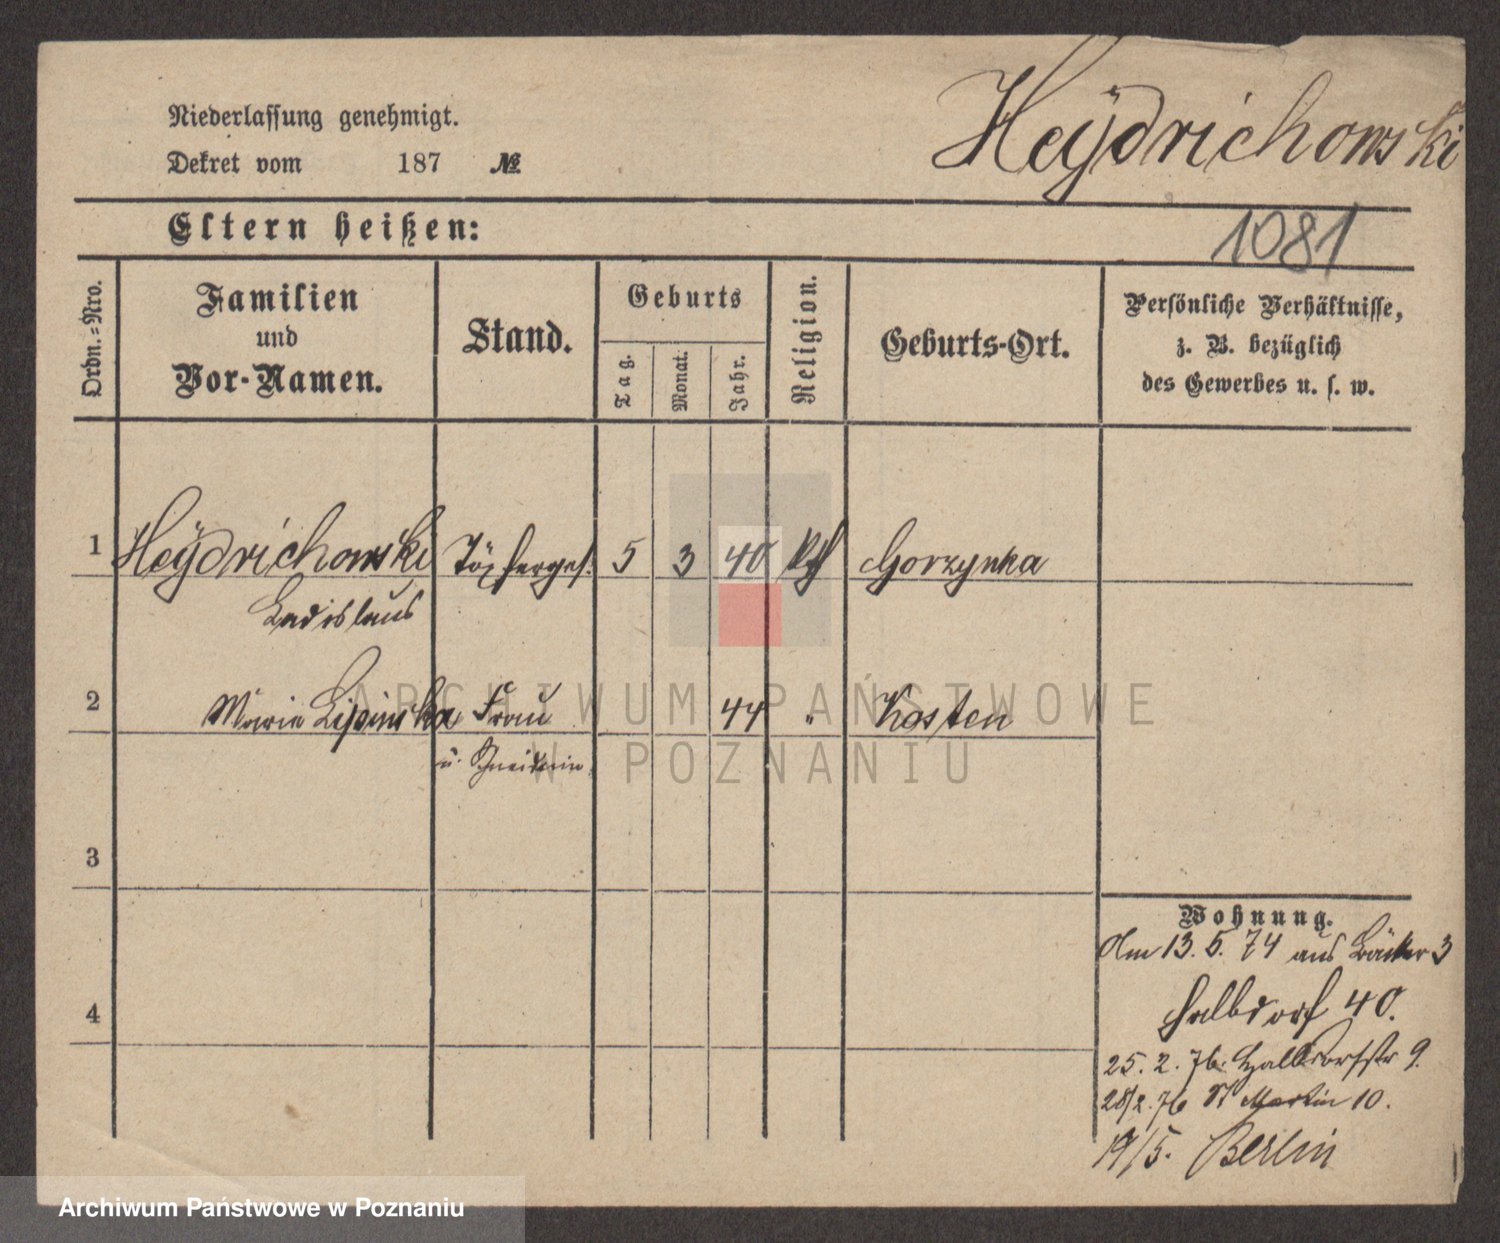 Heydrichowski
Niederlassung genehmigt.
Dekret vom 187 №
Eltern heißen:
1081
Ordn.=Nro.
Familien
und
Vor-Namen.
Stand.
Geburts
Tag.
Monat.
Jahr.
Religion.
Geburts-Ort.
Persönliche Verhältnisse,
z. B. bezüglich
des Gewerbes u. s. w.
1 Heÿdrichowski Töpferges. 5 3 40 kth Gorzynka
Ladislaus
2 Maria Lipinska Frau 44 " Kosten
u. Schneiderin
3
4
Wohnung.
Am 13. 5. 74 aus Bäcker 3
Halbdorf 40.
25. 2. 76. Halbdorfstr 9.
28/2. 76 St Martin 10.
19/5. Berlin
ARCHIWUM PAŃSTWOWE
W POZNANIU
Archiwum Państwowe w Poznaniu